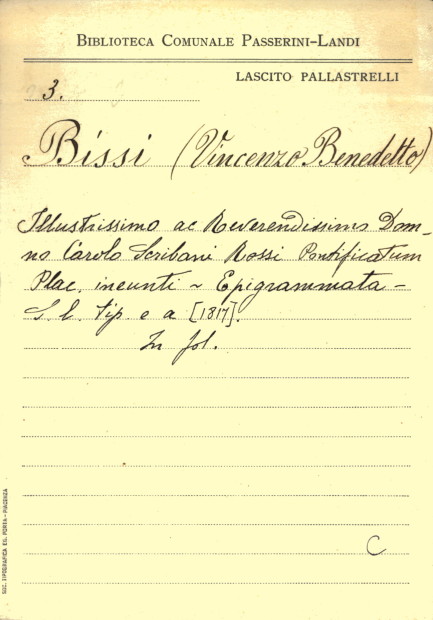 BIBLIOTECA COMUNALE PASSERINI-LANDI
LASCITO PALLASTRELLI
3.
Bissi (Vincenzo Benedetto)
Illustrissimo ac Reverendissimo Dom-
no Carolo Scribani Rossi Pontificatum
Plac. ineunti ~ Epigrammata -
S. l. tip. e a [1817].
In fol.
C
SOC. TIPOGRAFICA ED. PORTA - PIACENZA